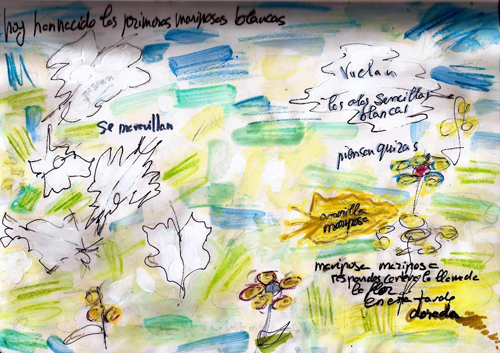 hoy han nacido las primeras mariposas blancas
se maravillan
Vuelan
las alas sencillas
blancas
piensan quizas
amarilla
mariposa
mariposa mariposa
respondes contra la llamada
la flor
en esta tarde
dorada